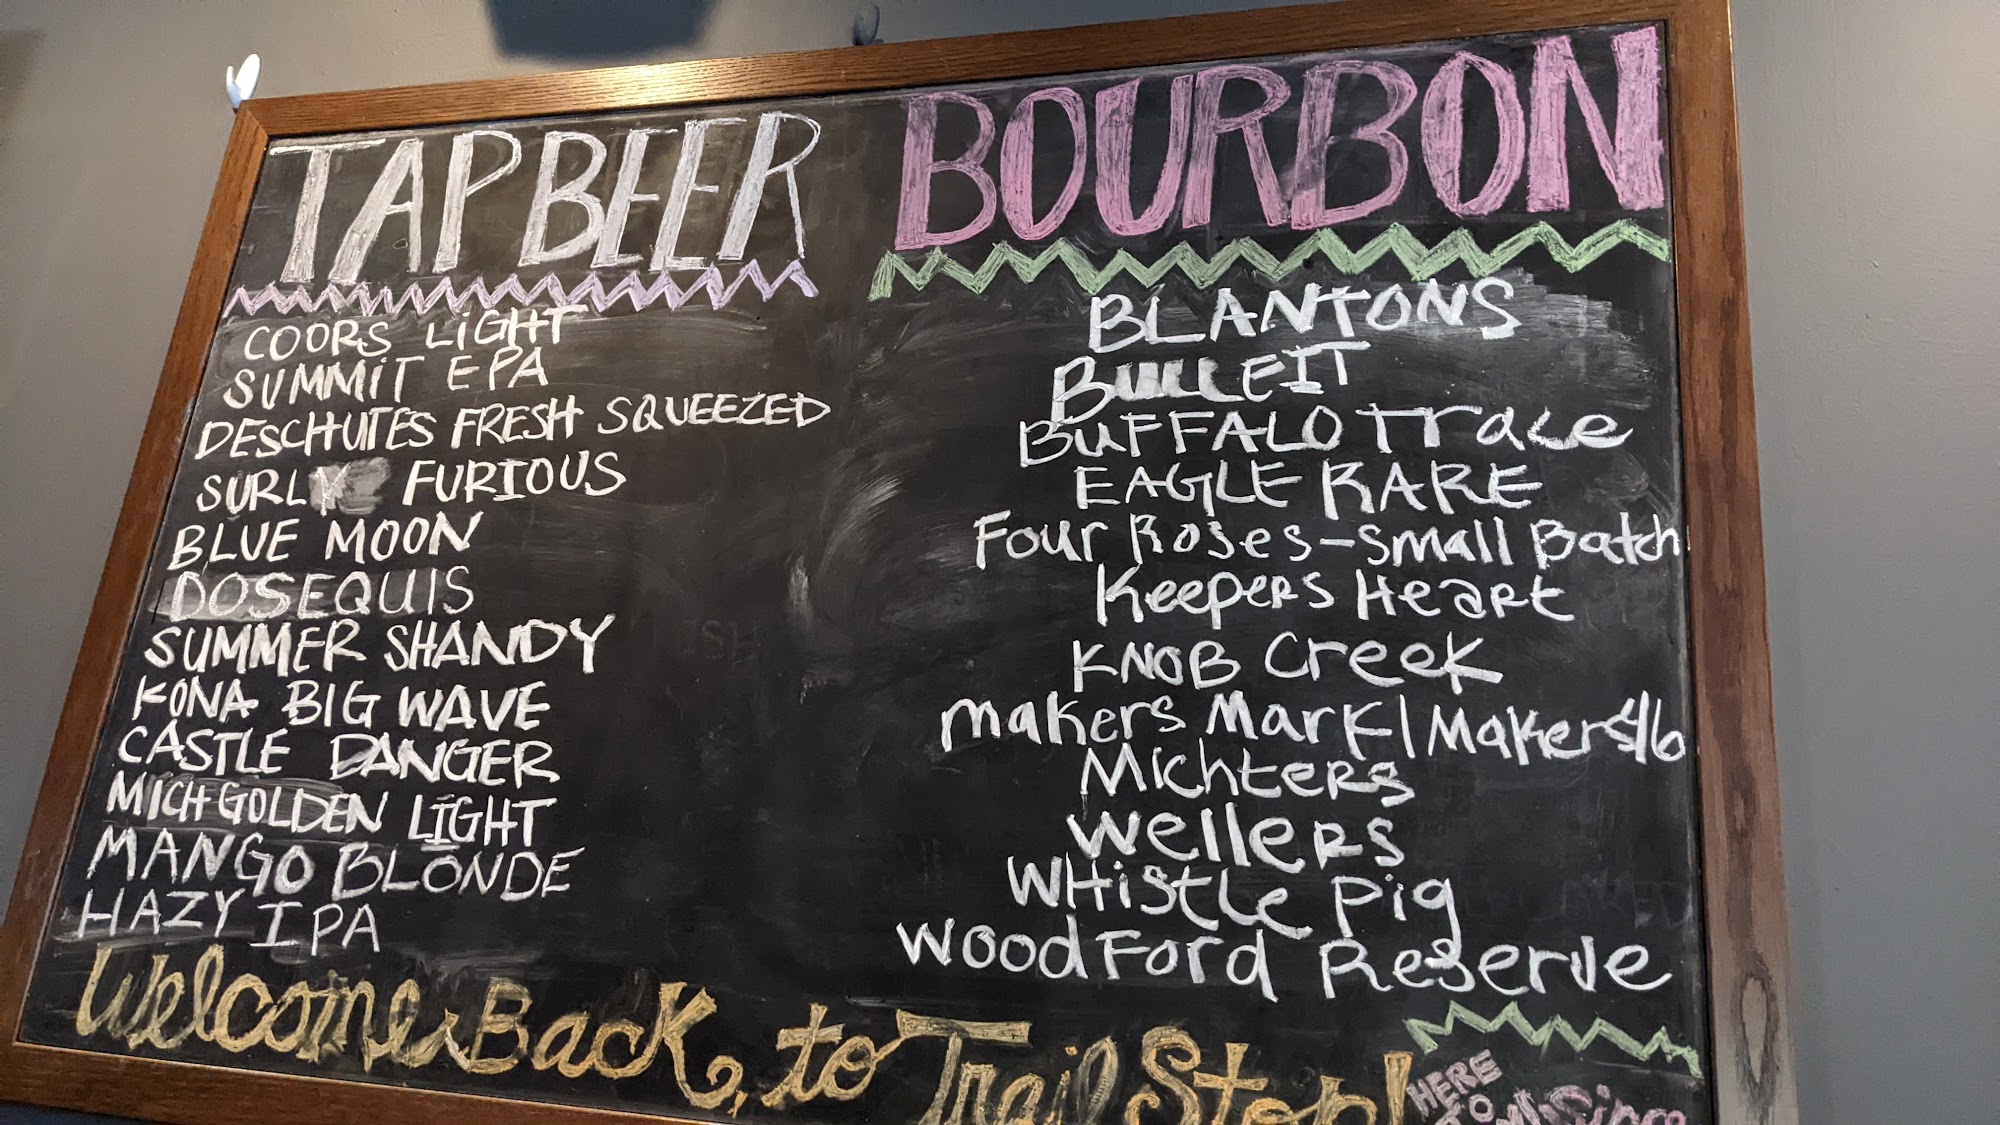 TAP BEER
COORS LiGHT
SUMMiT EPA
DESCHUTES FRESH SQUEEZED
SURLY FURIOUS
BLUE MOON
DOSEQUIS
SUMMER SHANDY
KONA BIG WAVE
CASTLE DANGER
MICH GOLDEN LIGHT
MANGO BLONDE
HAZY IPA
BOURBON
BLANTONS
BULLEIT
BUFFALO Trace
EAGLE RARE
Four Roses-Small Batch
Keepers Heart
KNOB Creek
makers Mark/Makers46
Michters
Wellers
WHistle Pig
WoodFord Reserve
Welcome Back, to Trail Stop!
HERE
TO